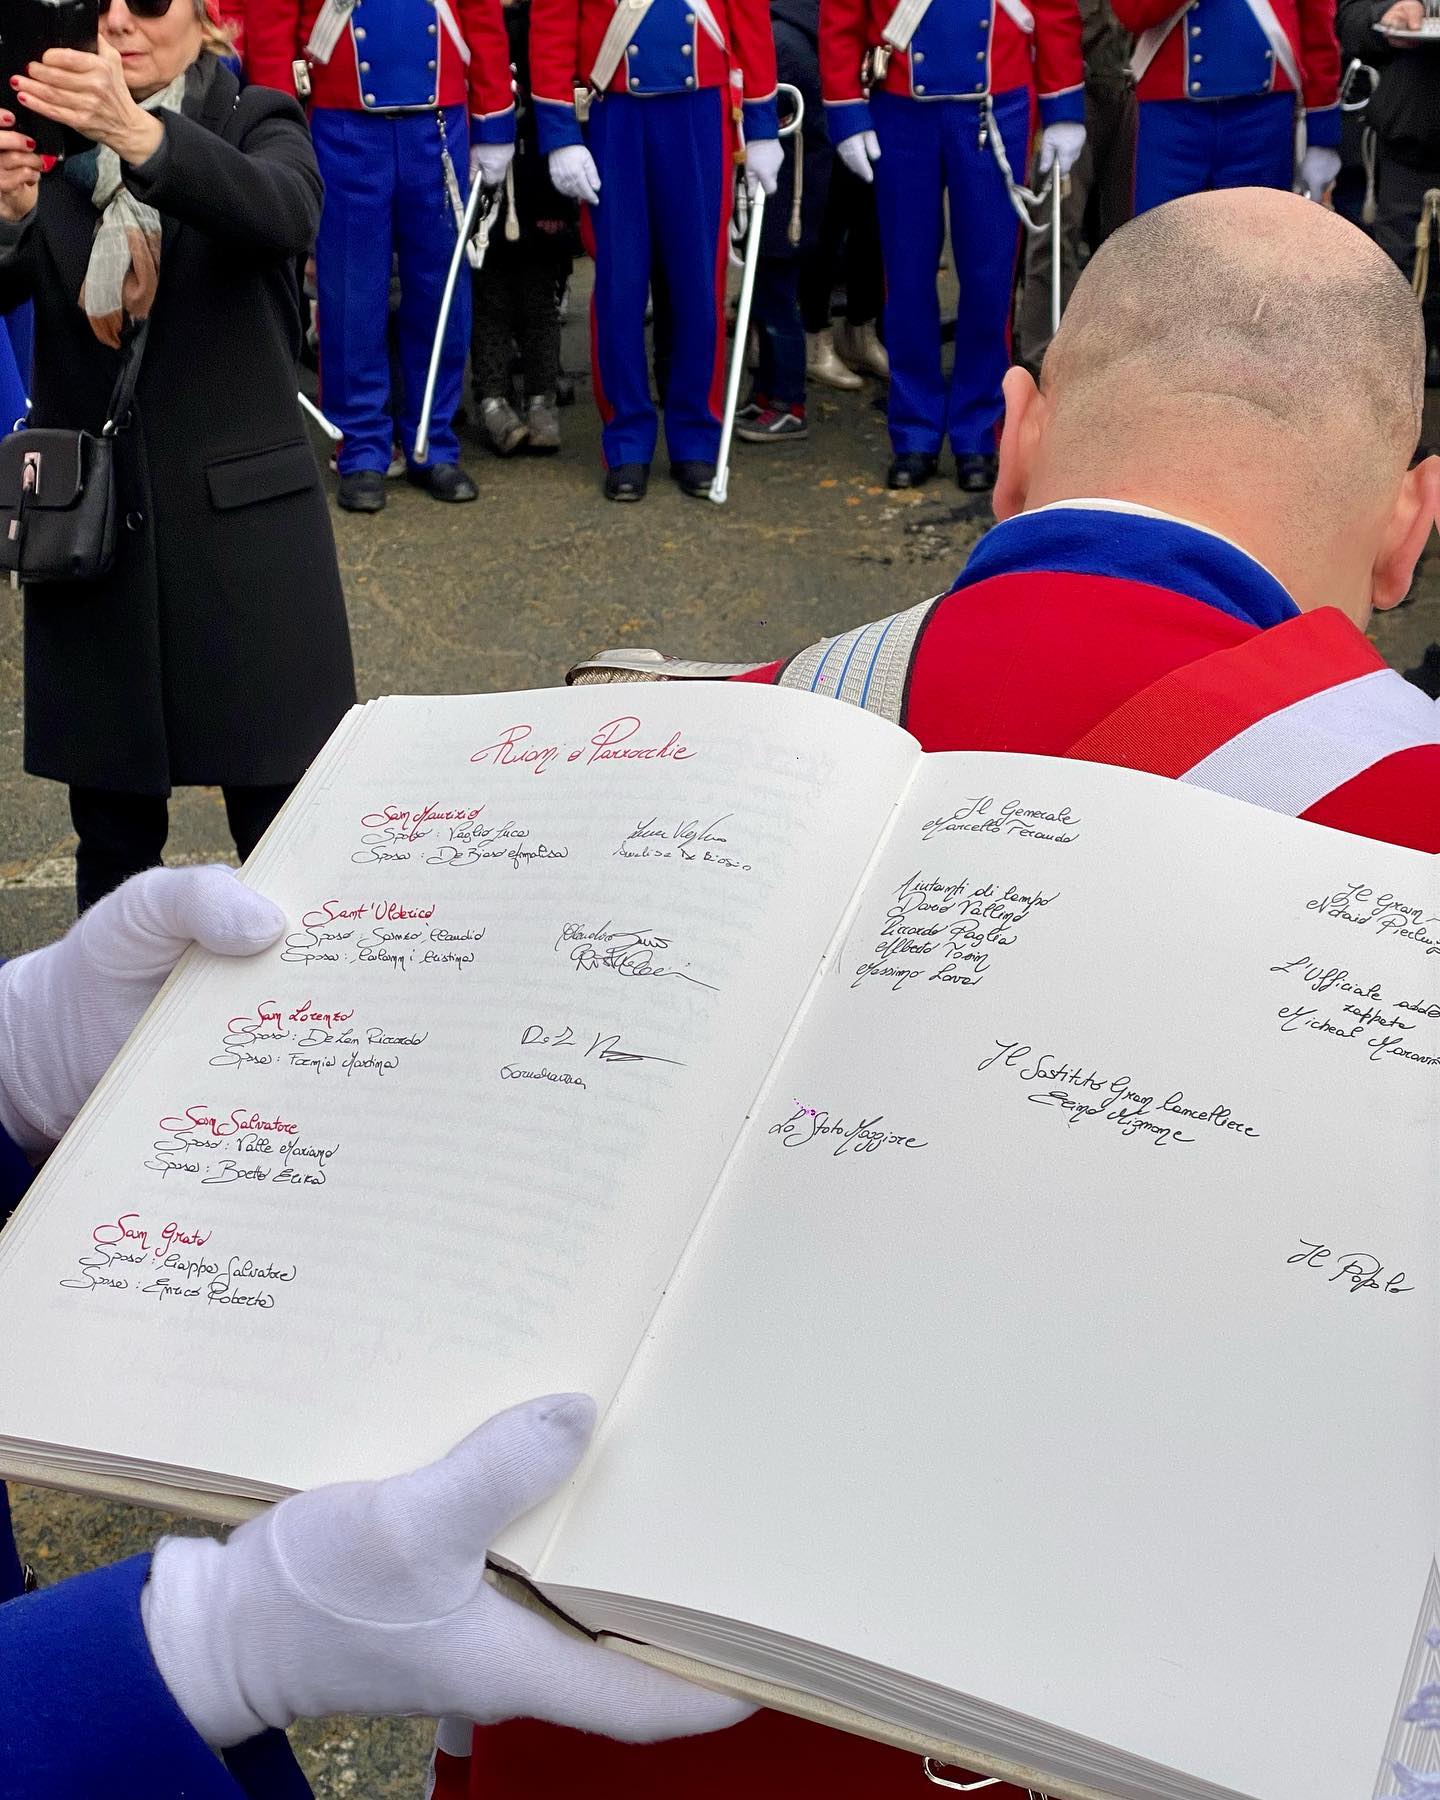 Rioni e Parrocchie
San Maurizio
Sposo: Vaglio Luca
Sposa: De Biaso Annalisa
Sant'Ulderico
Sposo: Claudio
Sposa: Cristina
San Lorenzo
Sposo: De Len Riccardo
Sposa: Formia Martina
San Salvatore
Sposo: Valle Mariano
Sposa: Boetto Erika
San Grato
Sposo: Ciappa Salvatore
Sposa: Enrico Roberta
Il Generale
Marcello Ferando
Aiutanti di Campo
Dario Vallino
Riccardo Paglia
Alberto Tosin
Massimo Lova
Il Gran
Notaio
L'Ufficiale
zappata
Micheal
Il Sostituto Gran Cancelliere
Erino Mignone
Lo Stato Maggiore
Il Popolo